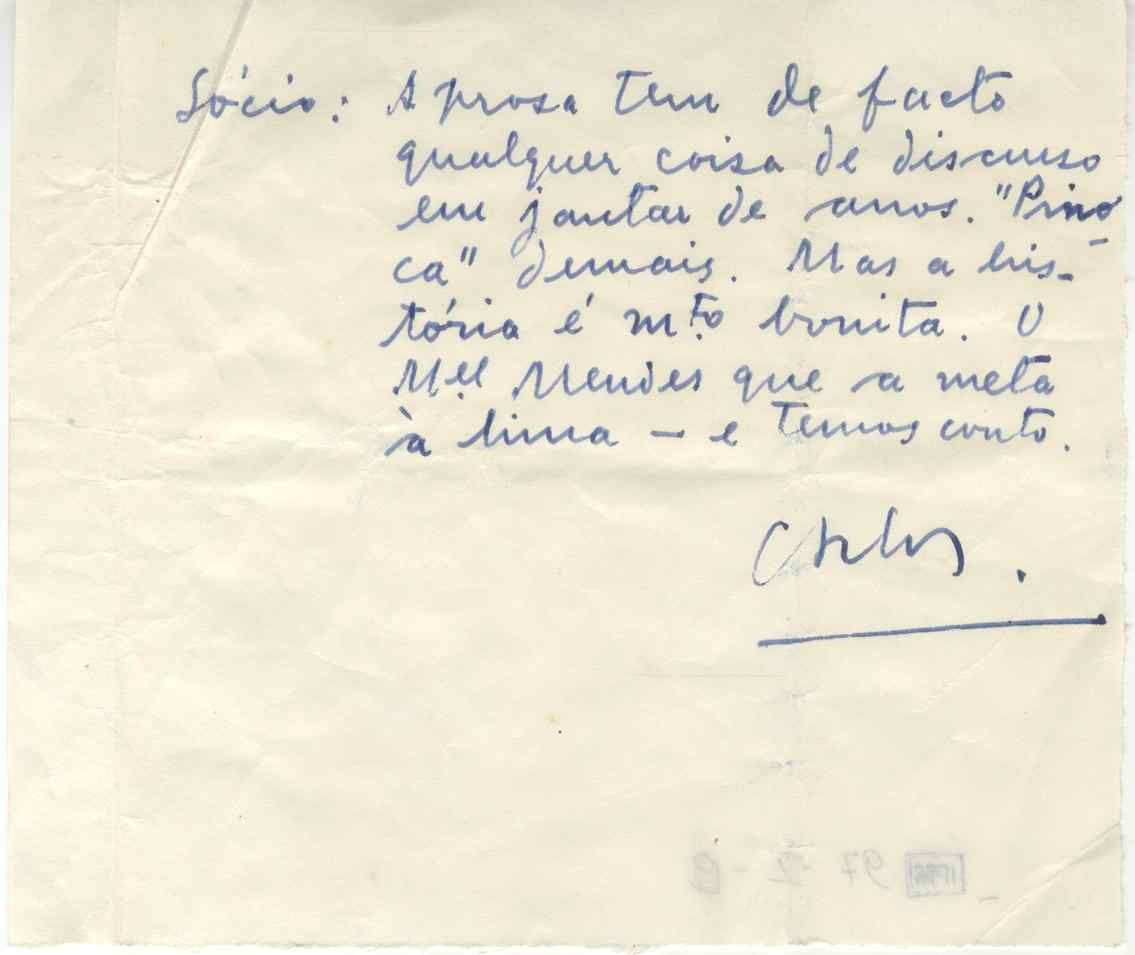 Sócio: A prosa tem de facto
qualquer coisa de discurso
em jantar de anos. "Pino-
ca" demais. Mas a his-
tória é m.to bonita. O
M.el Mendes que a meta
à lima — e temos conto.
Carlos.